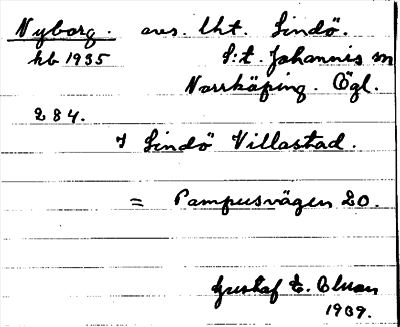 Nyborg. avs. lht. Lindö.
hb 1935 S:t. Johannis sn
Norrköping. Ögl.
284.
I Lindö Villastad.
= Pampusvägen 20.
Gustaf E. Olson
1939.